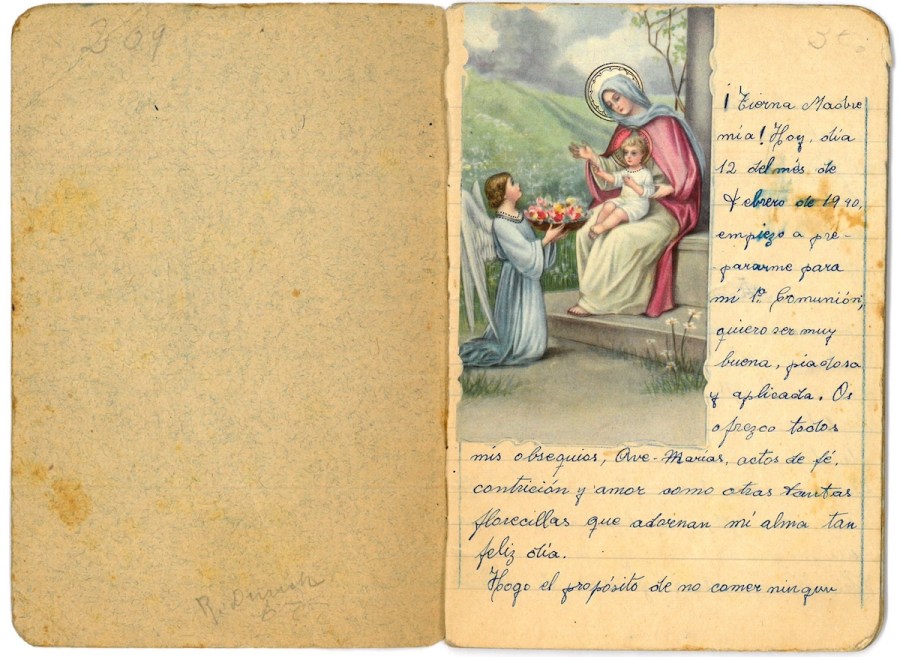 269
¡Tierna Madre
mía! Hoy, día
12 del més de
Febrero de 1940,
empiezo a pre-
pararme para
mi 1ª Comunión,
quiero ser muy
buena, piadosa
y aplicada. Os
ofrezco todos
mis obsequios, Ave-Marías, actos de fé,
contrición y amor como otras tantas
florecillas que adornan mi alma tan
feliz día.
Hago el propósito de no comer ningun